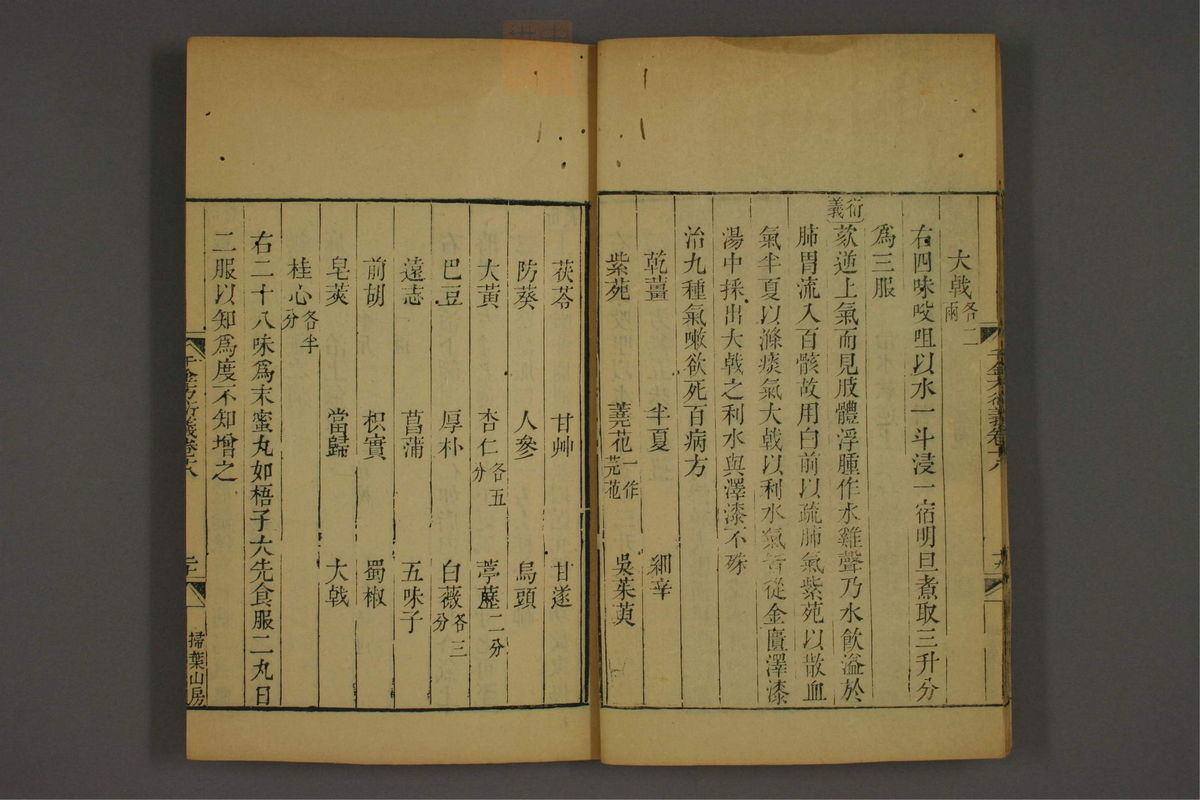 大戟各二兩
右四味㕮咀以水一斗浸一宿明旦煮取三升分
為三服
衍義
欬逆上氣而見肢體浮腫作水雞聲乃水飲溢於
肺胃流入百骸故用白前以疏肺氣紫苑以散血
氣半夏以滌痰氣大戟以利水氣皆從金匱澤漆
湯中採出大戟之利水與澤漆不殊
治九種氣嗽欲死百病方
乾薑 半夏 細辛
紫苑 蕘花一作芫花 吳茱萸
千金方衍義卷十八
十九
茯苓 甘艸 甘遂
防葵 人參 烏頭
大黃 杏仁各五分 葶藶二分
巴豆 厚朴 白薇各三分
遠志 菖蒲 五味子
前胡 枳實 蜀椒
皂莢 當歸 大戟
桂心各半分
右二十八味為末蜜丸如梧子大先食服二丸日
二服以知為度不知增之
千金方衍義卷十八
二十
掃葉山房